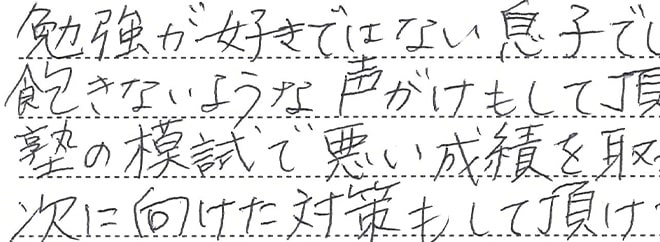 勉強が好きではない息子でし
飽きないような声がけもして頂
塾の模試で悪い成績を取
次に向けた対策もして頂け